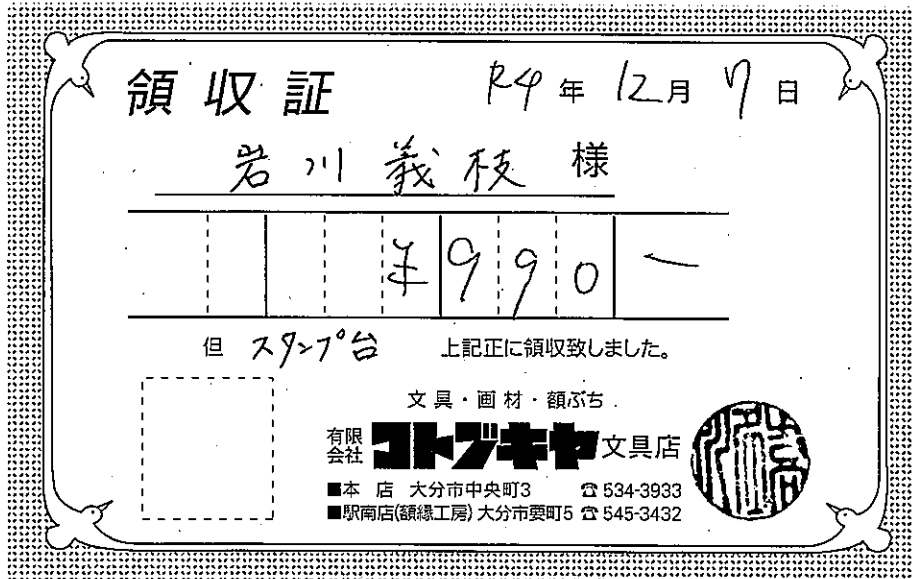 領収証 R4年 12月 7日
岩川義枝 様
¥990-
但 スタンプ台 上記正に領収致しました。
文具・画材・額ぶち
有限会社 コトブキヤ 文具店
■本 店 大分市中央町3 ☎534-3933
■駅南店(額縁工房) 大分市要町5 ☎545-3432